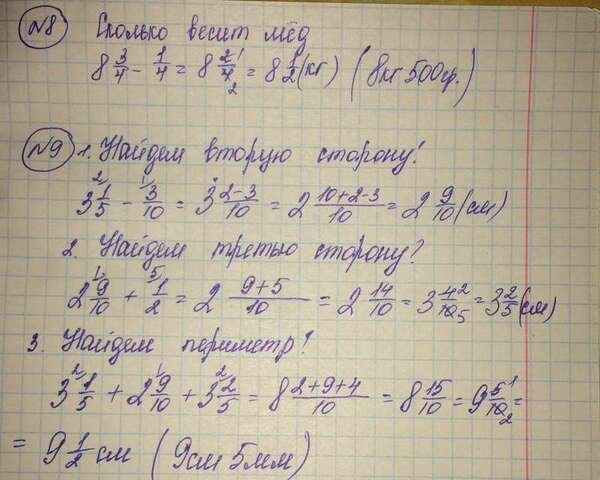 №8 Сколько весит мёд
8 3/4 - 1/4 = 8 2/4 = 8 1/2 (кг) (8кг 500гр.)
№9 1. Найдем вторую сторону!
3 1/5 - 3/10 = 3 2-3/10 = 2 10+2-3/10 = 2 9/10 (см)
2. Найдем третью сторону?
2 9/10 + 1/2 = 2 9+5/10 = 2 14/10 = 3 4/10 = 3 2/5 (см)
3. Найдем периметр!
3 1/5 + 2 9/10 + 3 2/5 = 8 2+9+4/10 = 8 15/10 = 9 5/10 =
= 9 1/2 см (9см 5мм)